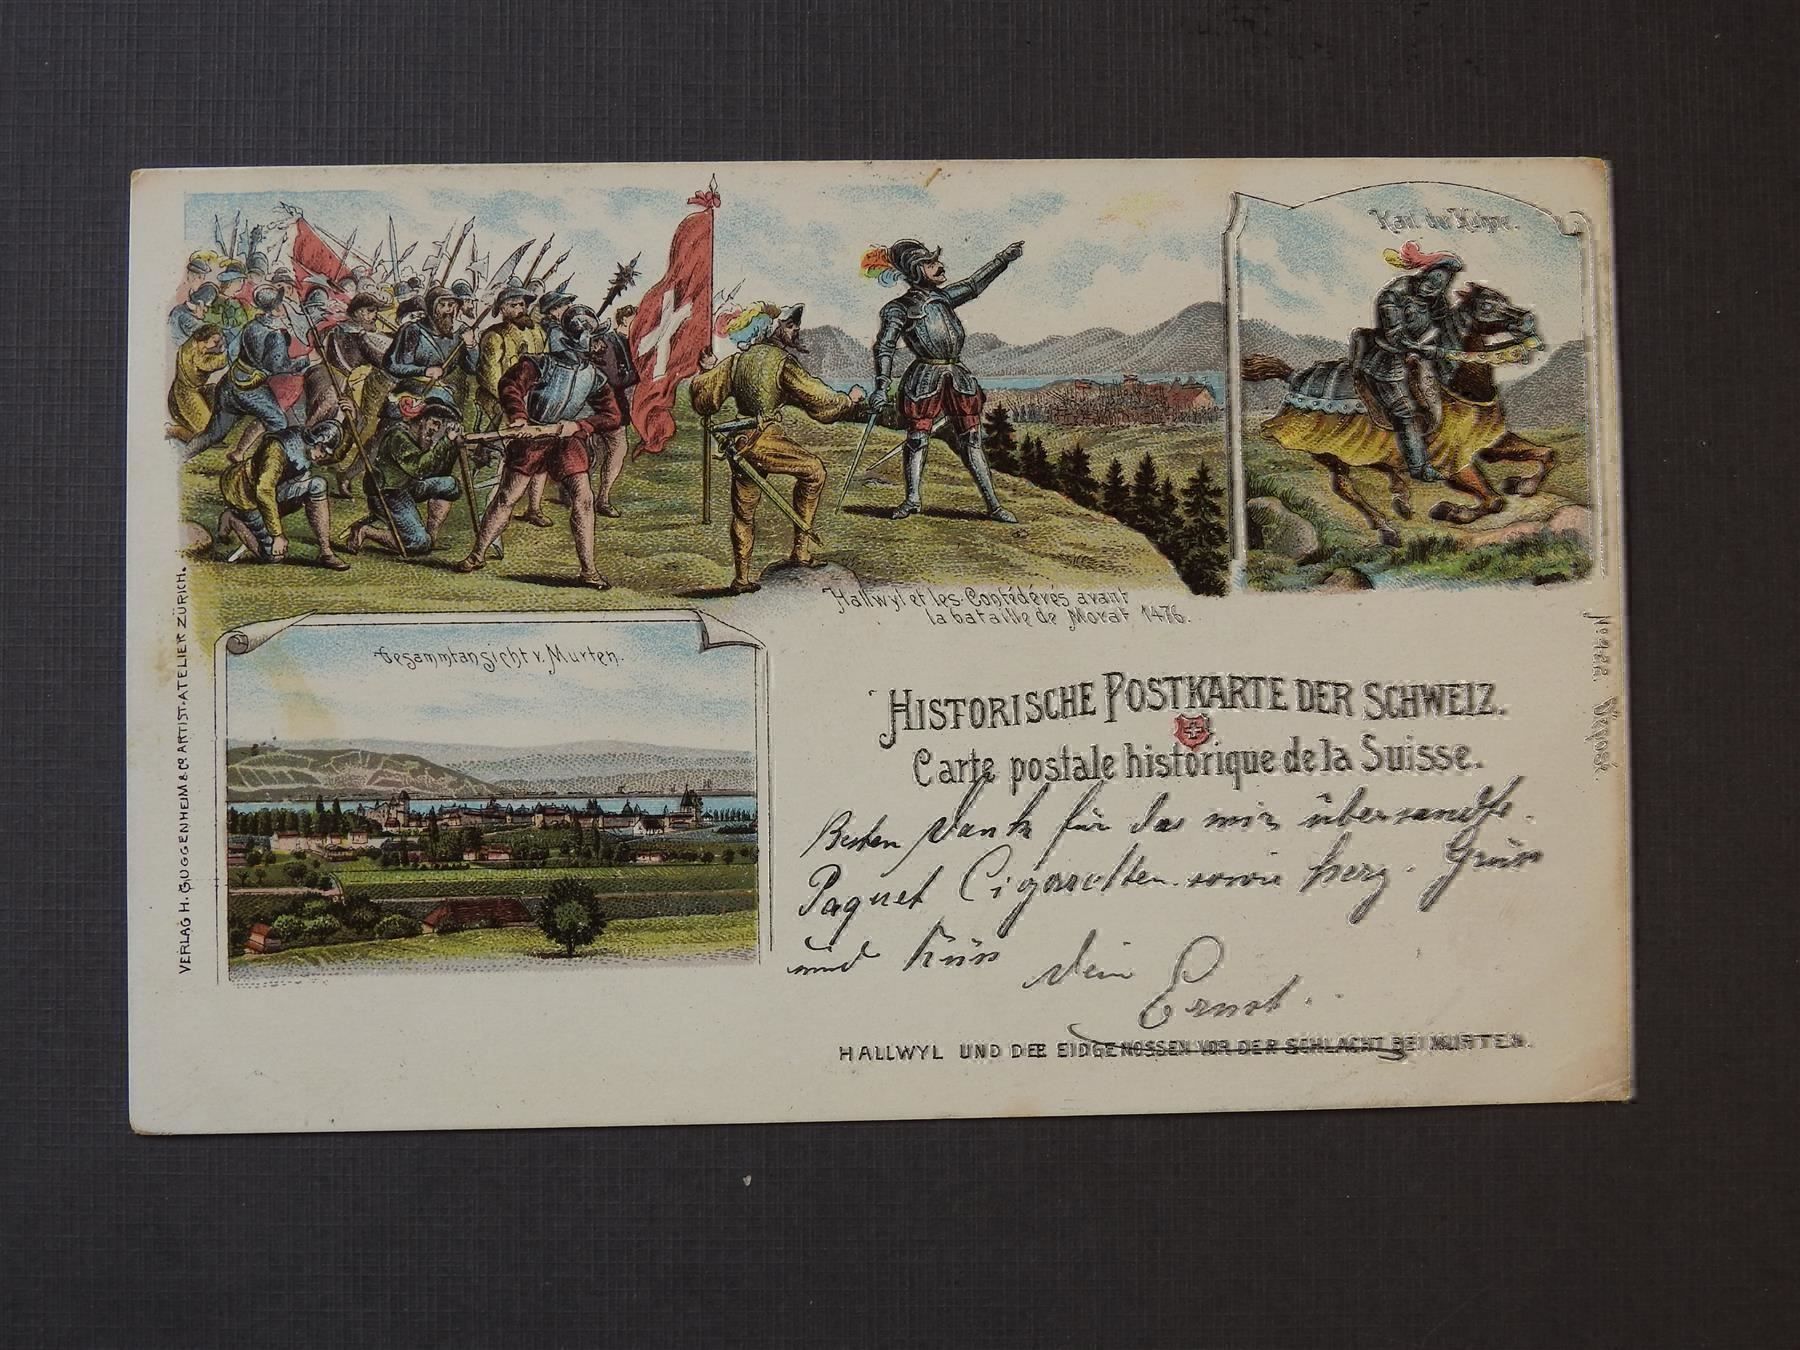 Karl der Kühne.
Hallwyl et les Confédérés avant
la bataille de Morat 1476.
Gesammtansicht v. Murten.
VERLAG H. GUGGENHEIM & Co. ARTIST. ATELIER ZÜRICH.
Déposé.
HISTORISCHE POSTKARTE DER SCHWEIZ.
Carte postale historique de la Suisse.
Besten Dank für das mir übersandte
Paquet Cigaretten sowie herz. Grüss
und Küss
Dein
Ernst.
HALLWYL UND DER EIDGENOSSEN VOR DER SCHLACHT BEI MURTEN.